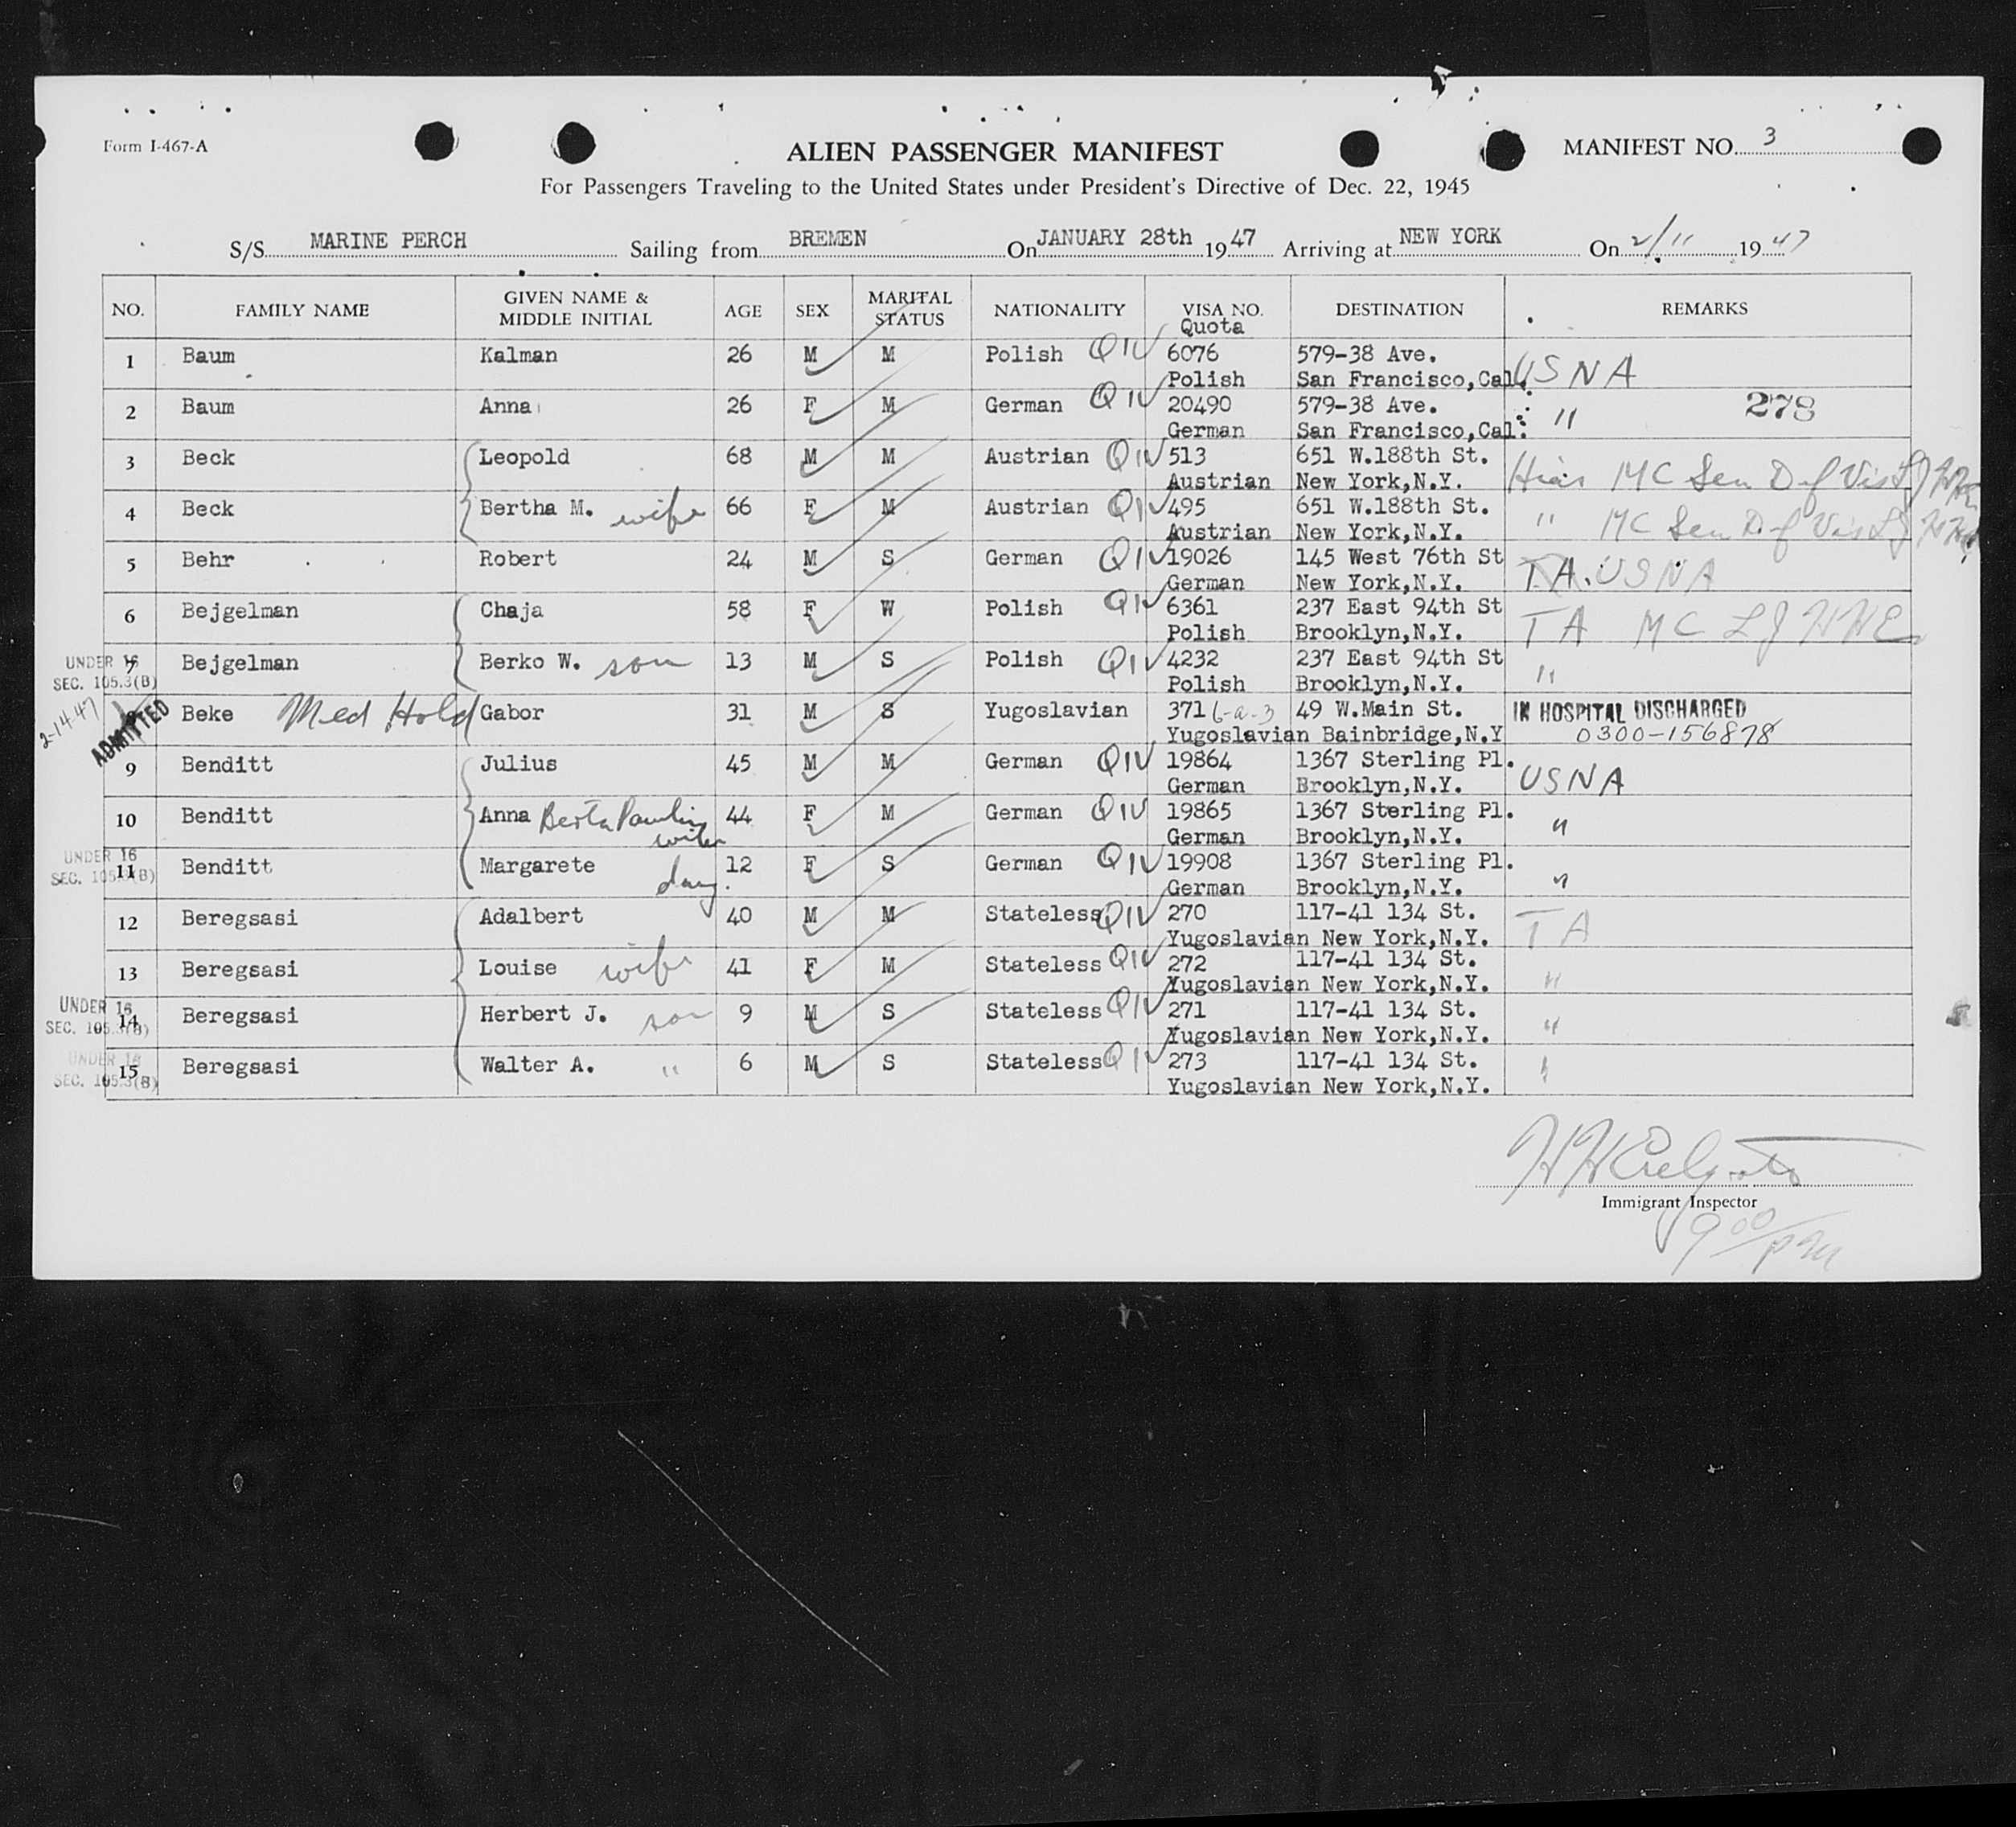 Form I-467-A
ALIEN PASSENGER MANIFEST
MANIFEST NO. 3
For Passengers Traveling to the United States under President's Directive of Dec. 22, 1945
S/S MARINE PERCH Sailing from BREMEN On JANUARY 28th 1947 Arriving at NEW YORK On 2/11 1947
NO. FAMILY NAME GIVEN NAME & MIDDLE INITIAL AGE SEX MARITAL STATUS NATIONALITY VISA NO. Quota DESTINATION REMARKS
1 Baum Kalman 26 M M Polish QIV 6076 579-38 Ave. USNA
Polish San Francisco,Cal.
2 Baum Anna 26 F M German QIV 20490 579-38 Ave. " 278
German San Francisco,Cal.
3 Beck Leopold 68 M M Austrian QIV 513 651 W.188th St. Hias MC Sen
Austrian New York,N.Y.
4 Beck Bertha M. wife 66 F M Austrian QIV 495 651 W.188th St. " MC Sen
Austrian New York,N.Y.
5 Behr Robert 24 M S German QIV 19026 145 West 76th St T.A. USNA
German New York,N.Y.
6 Bejgelman Chaja 58 F W Polish QIV 6361 237 East 94th St TA MC
Polish Brooklyn,N.Y.
UNDER 16 SEC. 105.3(B) 7 Bejgelman Berko W. son 13 M S Polish QIV 4232 237 East 94th St "
Polish Brooklyn,N.Y.
2-14-47 ADMITTED Beke Med Hold Gabor 31 M S Yugoslavian 371 49 W.Main St. IN HOSPITAL DISCHARGED
Yugoslavian Bainbridge,N.Y 0300-156878
9 Benditt Julius 45 M M German QIV 19864 1367 Sterling Pl. USNA
German Brooklyn,N.Y.
10 Benditt Anna Berta Paulin wife 44 F M German QIV 19865 1367 Sterling Pl. "
German Brooklyn,N.Y.
UNDER 16 SEC. 105.3(B) 11 Benditt Margarete daug. 12 F S German QIV 19908 1367 Sterling Pl. "
German Brooklyn,N.Y.
12 Beregsasi Adalbert 40 M M Stateless QIV 270 117-41 134 St. TA
Yugoslavian New York,N.Y.
13 Beregsasi Louise wife 41 F M Stateless QIV 272 117-41 134 St. "
Yugoslavian New York,N.Y.
UNDER 16 SEC. 105.3(B) 14 Beregsasi Herbert J. son 9 M S Stateless QIV 271 117-41 134 St. "
Yugoslavian New York,N.Y.
UNDER 16 SEC. 105.3(B) 15 Beregsasi Walter A. " 6 M S Stateless QIV 273 117-41 134 St. "
Yugoslavian New York,N.Y.
Immigrant Inspector
9 00/PM